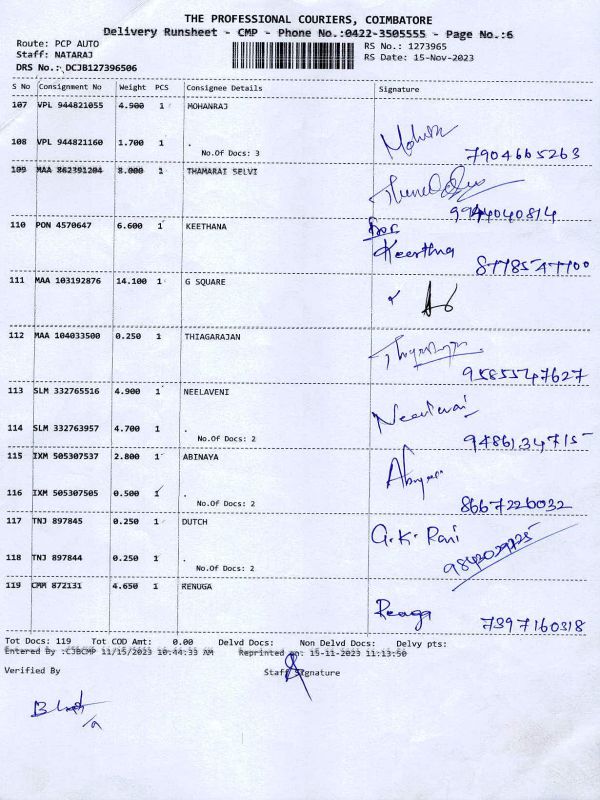 THE PROFESSIONAL COURIERS, COIMBATORE
Delivery Runsheet - CMP - Phone No.:0422-3505555 - Page No.:6
Route: PCP AUTO
RS No.: 1273965
Staff: NATARAJ
RS Date: 15-Nov-2023
DRS No.: DCJB127396506
S No Consignment No Weight PCS Consignee Details Signature
107 VPL 944821055 4.900 1 MOHANRAJ
108 VPL 944821160 1.700 1 .
No.Of Docs: 3
7904665263
109 MAA 862391204 8.000 1 THAMARAI SELVI
9944040814
110 PON 4570647 6.600 1 KEETHANA
Keerthna
8778547700
111 MAA 103192876 14.100 1 G SQUARE
112 MAA 104033500 0.250 1 THIAGARAJAN
9585547627
113 SLM 332765516 4.900 1 NEELAVENI
114 SLM 332763957 4.700 1 .
No.Of Docs: 2
9486134715
115 IXM 505307537 2.800 1 ABINAYA
116 IXM 505307505 0.500 1 .
No.Of Docs: 2
8667226032
117 TNJ 897845 0.250 1 DUTCH
G.K. Rani
118 TNJ 897844 0.250 1 .
No.Of Docs: 2
9843029725
119 CMM 872131 4.650 1 RENUGA
7397160318
Tot Docs: 119 Tot COD Amt: 0.00 Delvd Docs: Non Delvd Docs: Delvy pts:
Entered By :CJBCMP 11/15/2023 10:44:33 AM Reprinted on: 15-11-2023 11:13:50
Verified By
Staff Signature